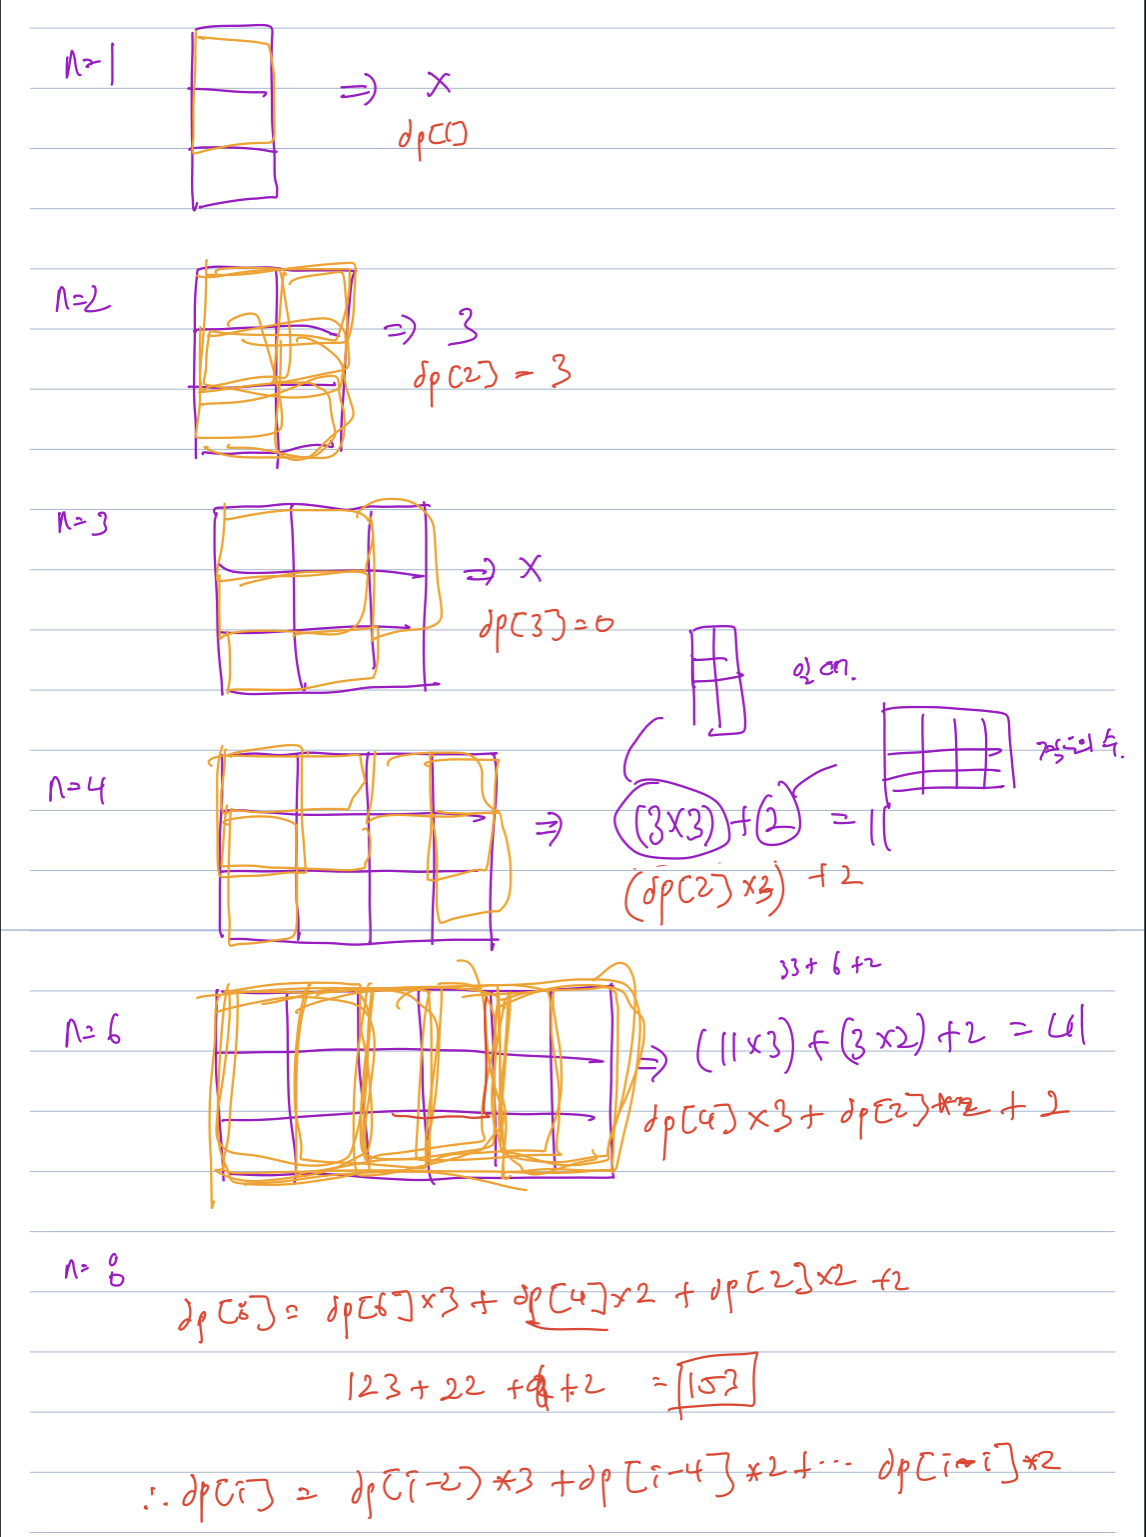 n=1 ⇒ X
dp[1]
n=2 ⇒ 3
dp[2] = 3
n=3 ⇒ X
dp[3]=0
n=4 ⇒ (3x3)+2 = 11
(dp[2] x3) +2
33+6+2
n=6 ⇒ (11x3)+(3x2)+2 = 41
dp[4]x3+dp[2]*2+2
n=8
dp[8]= dp[6]x3+dp[4]x2+dp[2]x2+2
123+22+ +2 =153
∴dp[i] = dp[i-2]*3+dp[i-4]*2+... dp[i-i]*2